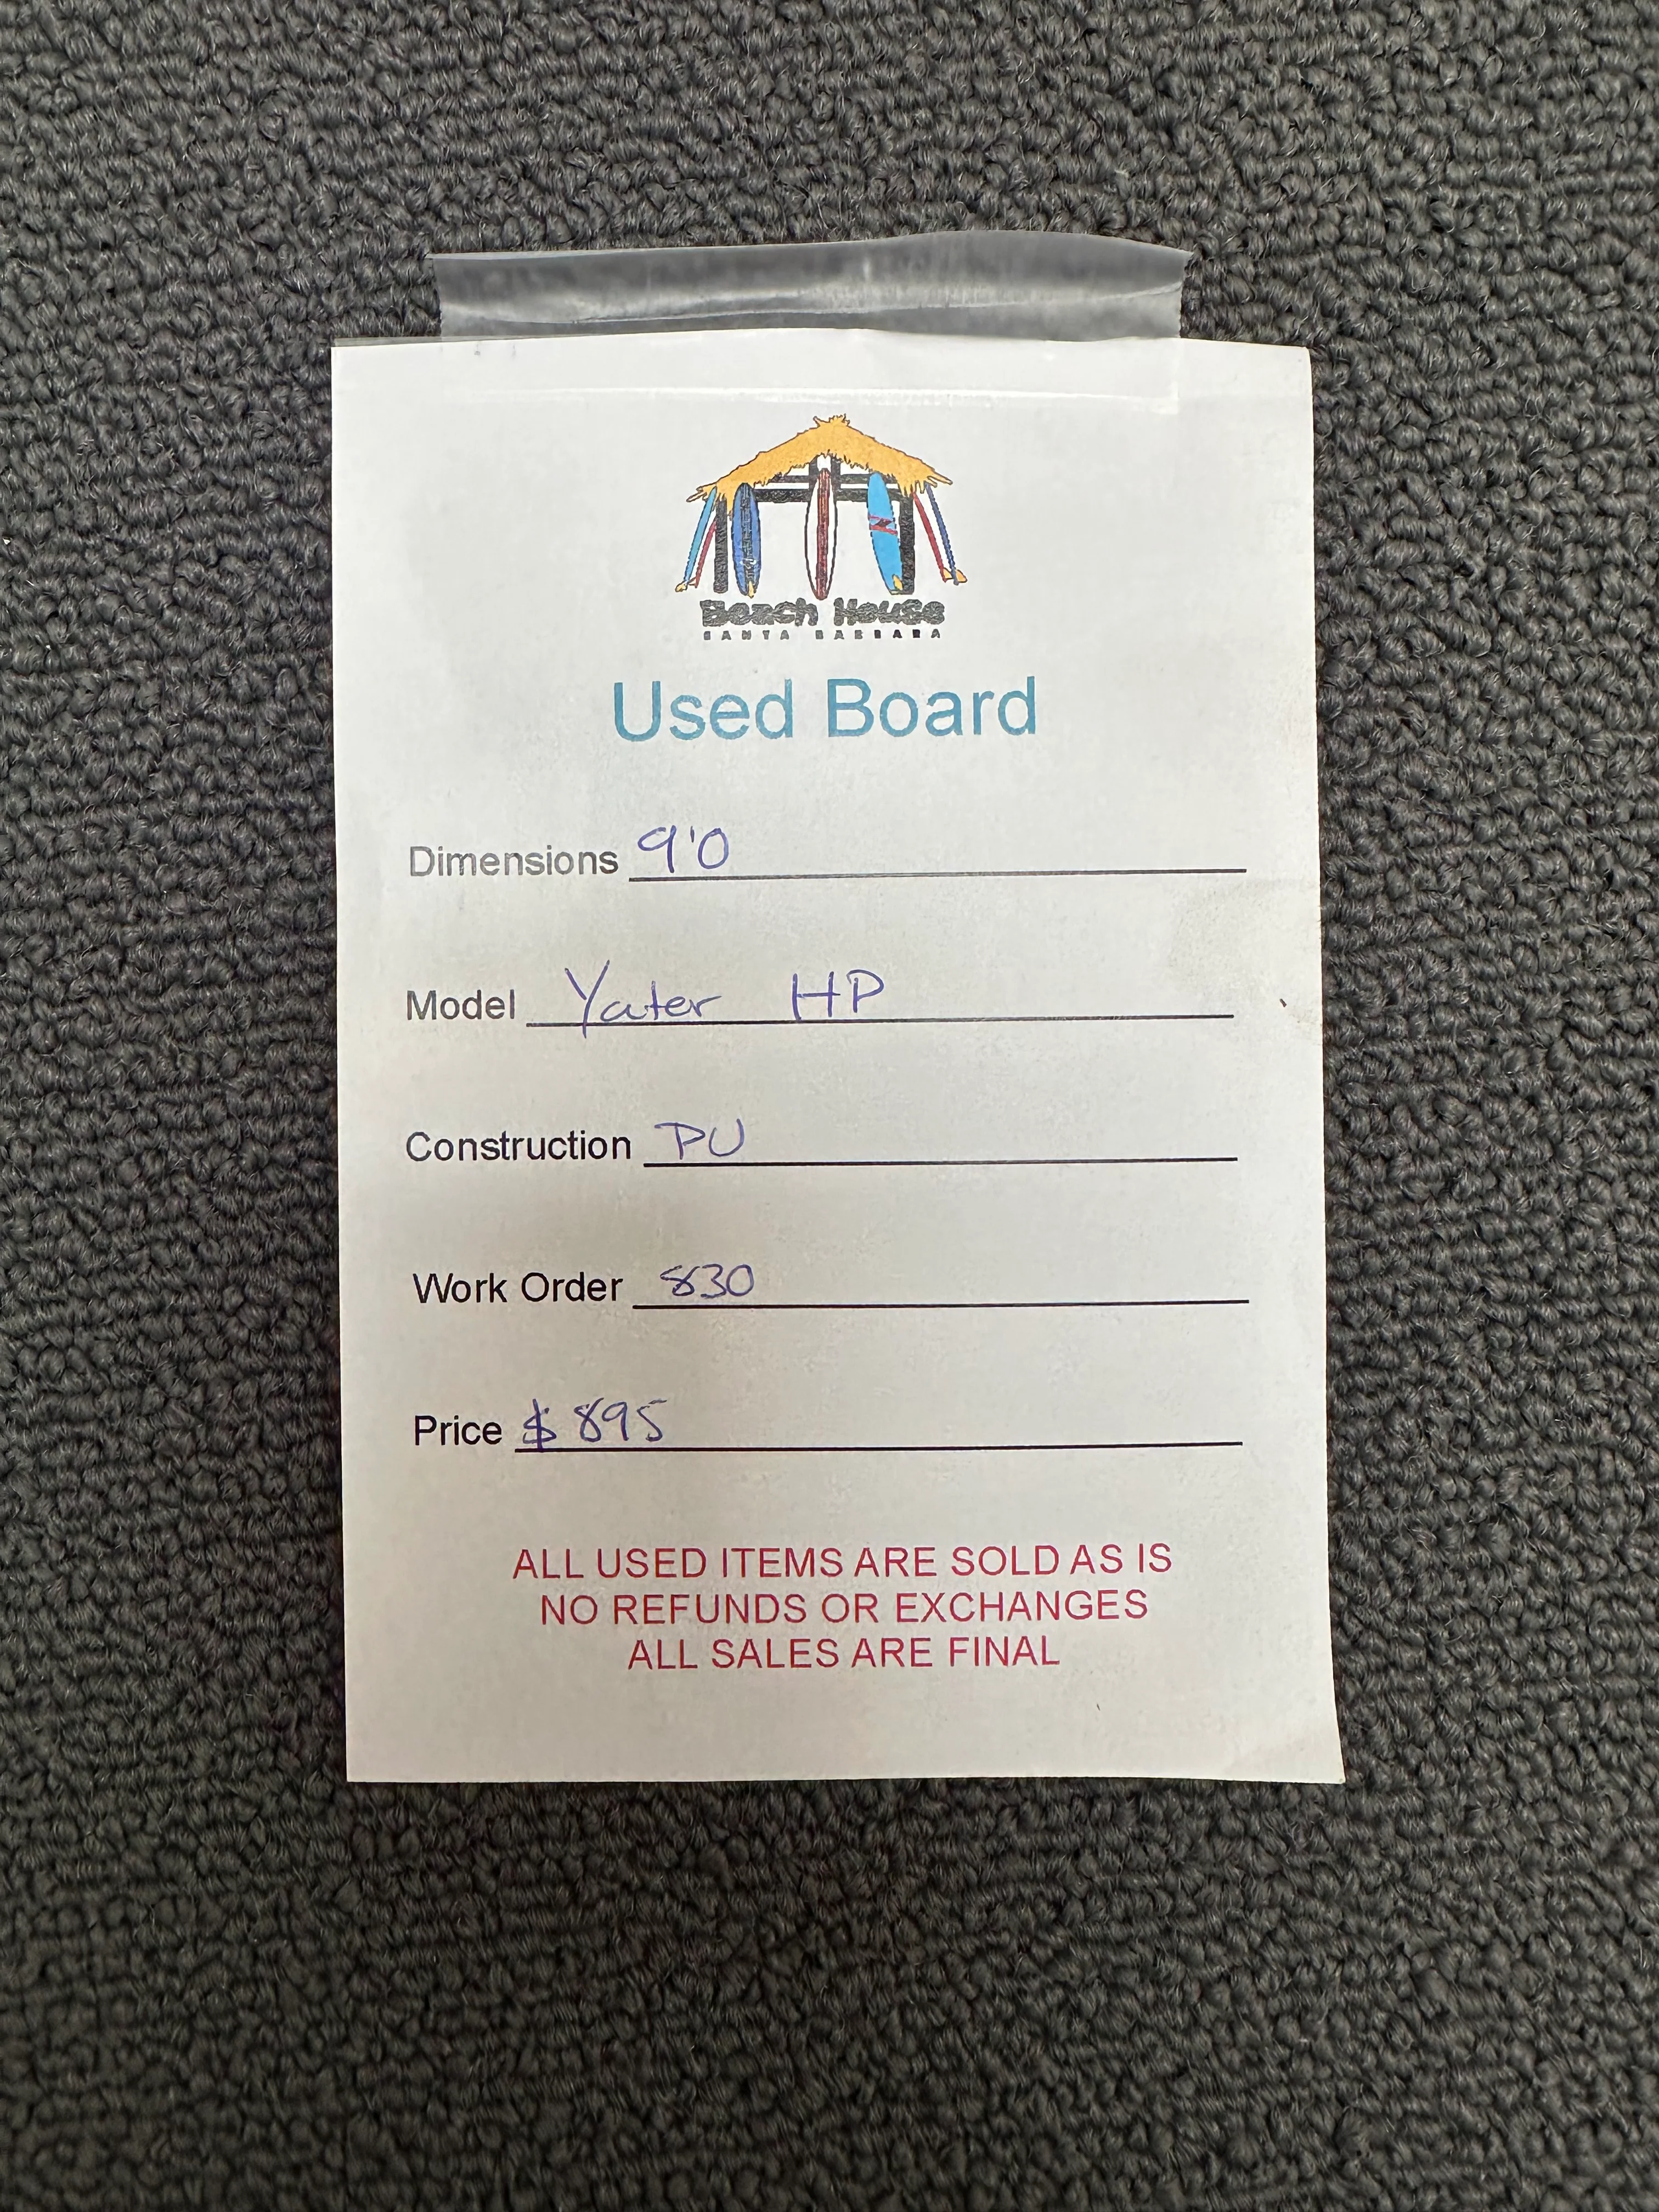 Beach House
SANTA BARBARA
Used Board
Dimensions 9'0
Model Yater HP
Construction PU
Work Order 830
Price $895
ALL USED ITEMS ARE SOLD AS IS
NO REFUNDS OR EXCHANGES
ALL SALES ARE FINAL